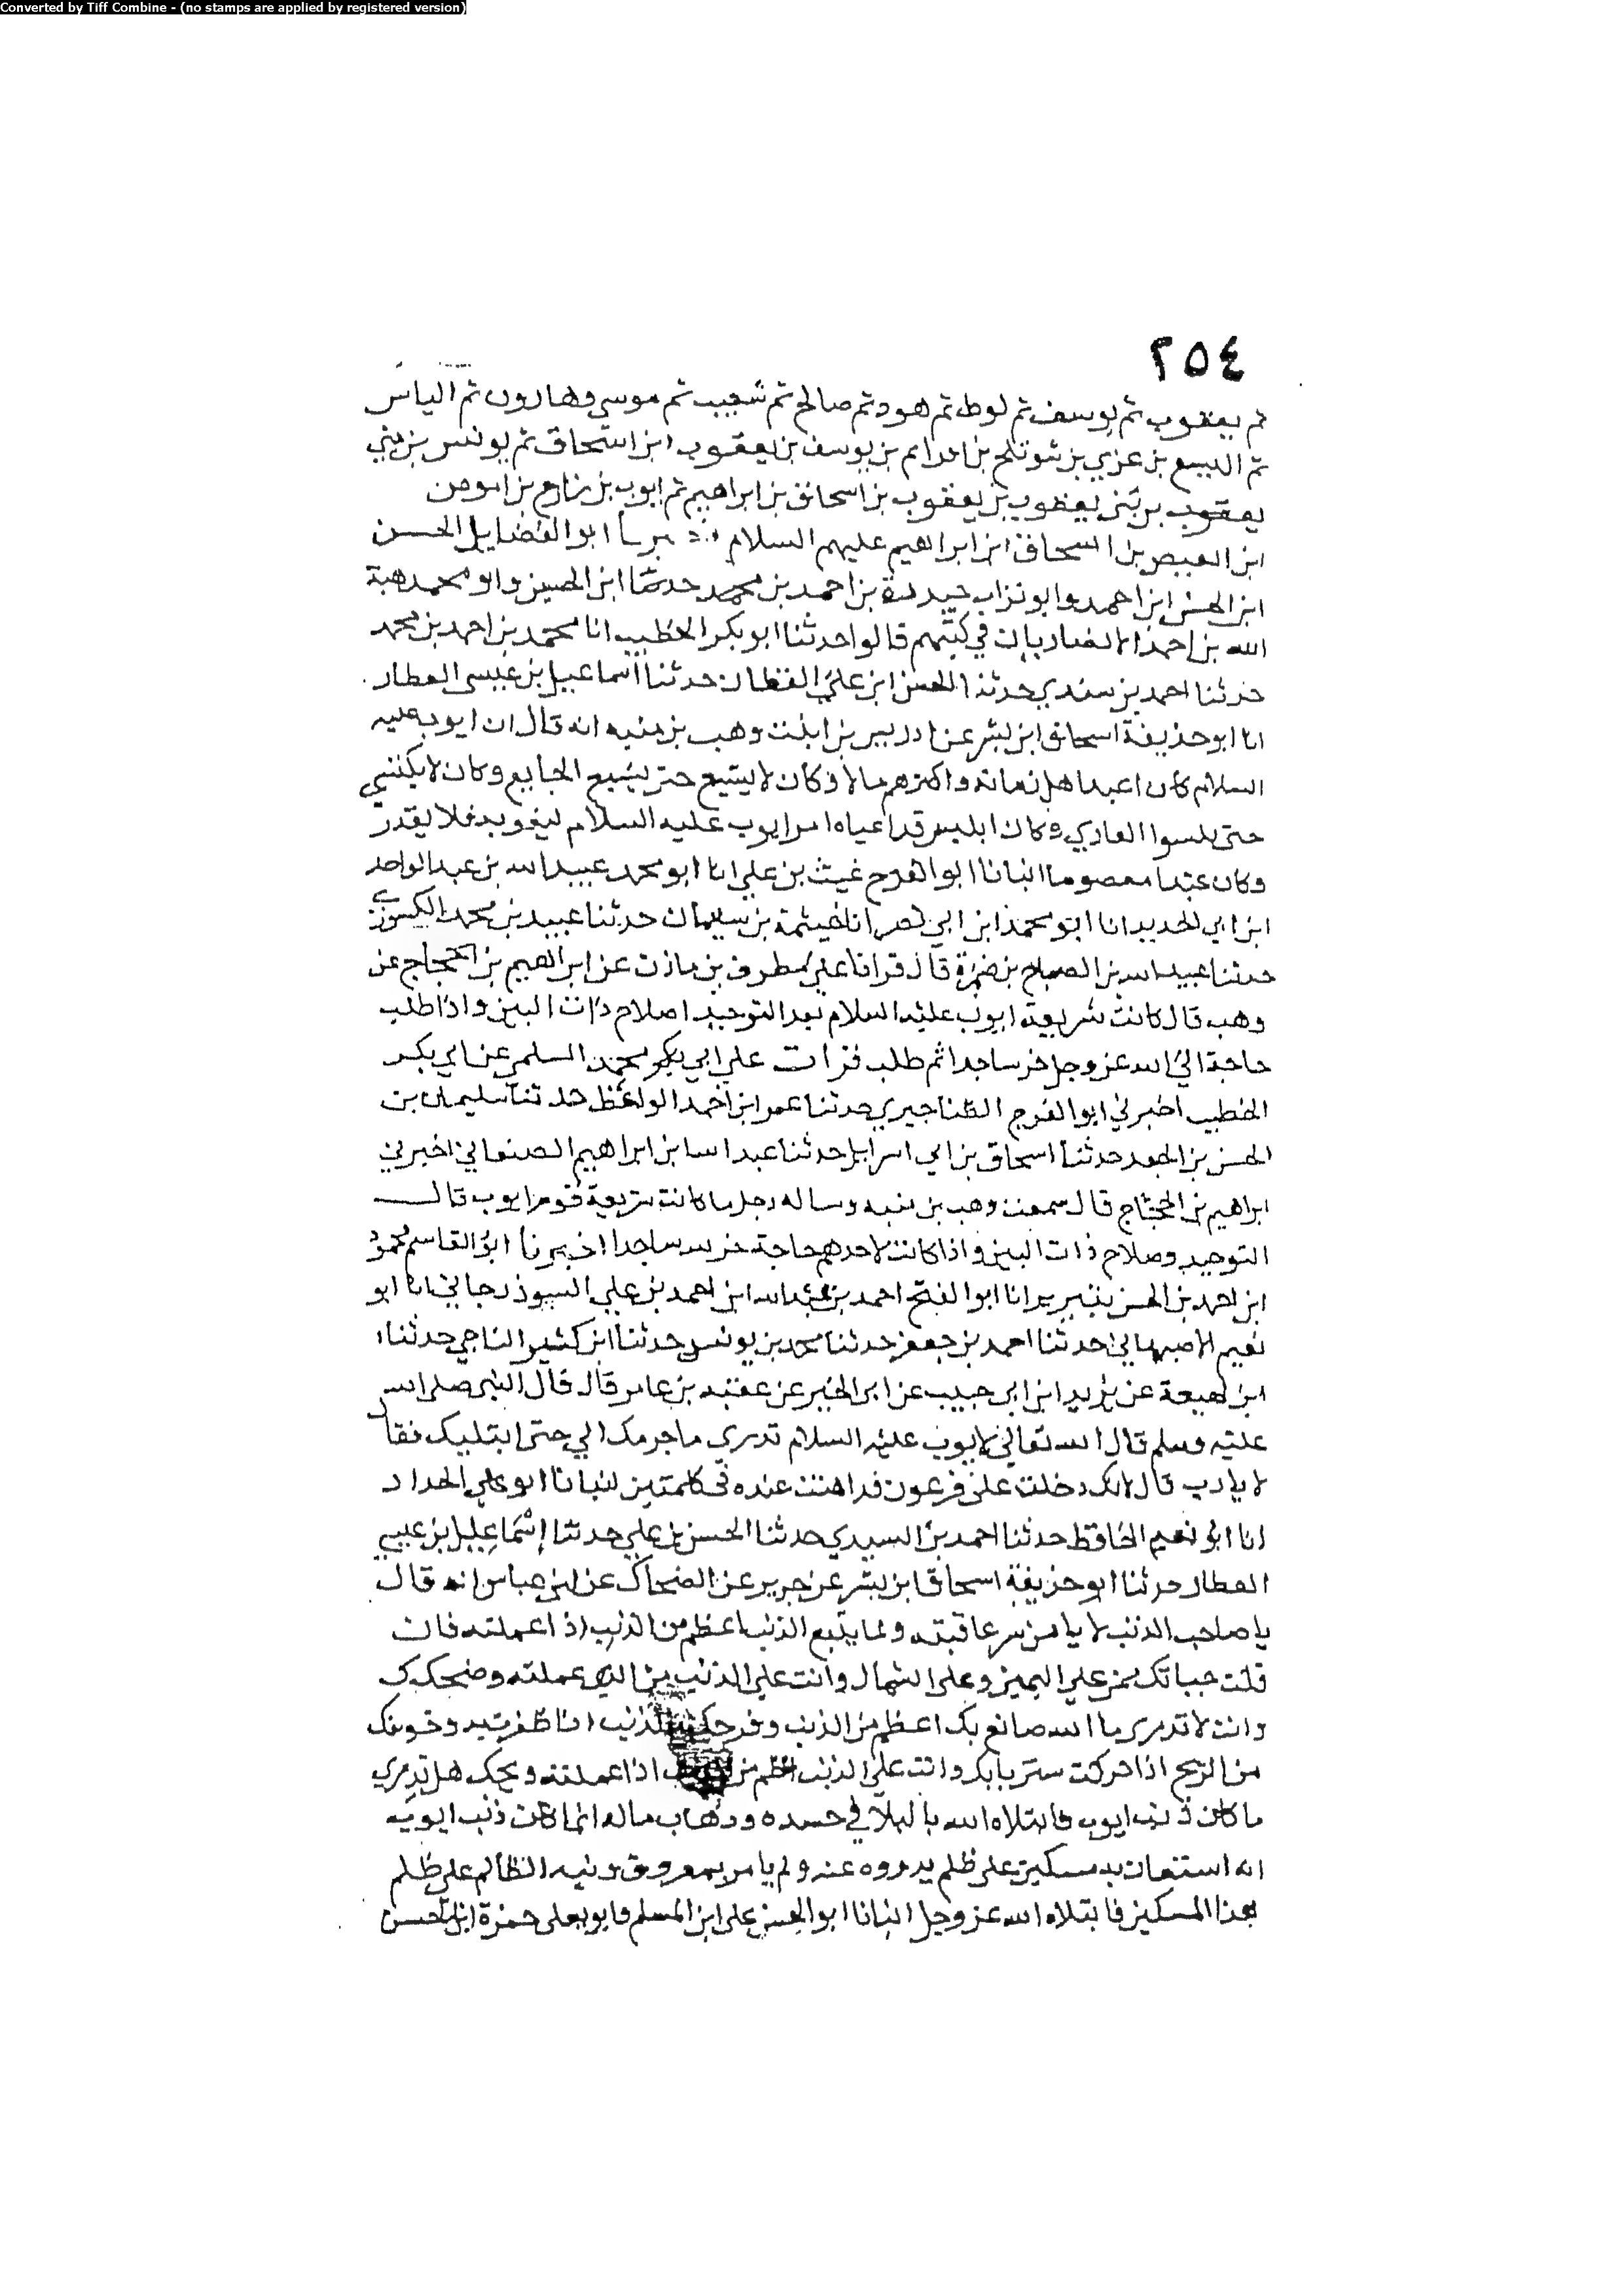 Converted by Tiff Combine - (no stamps are applied by registered version)
٢٥٤
ثم يعقوب ثم يوسف ثم لوط ثم هود ثم صالح ثم شعيب ثم موسى وهارون ثم الياس
ثم اليسع بن عزي بن شوتلخ بن افرايم بن يوسف بن يعقوب ابن اسحاق ثم يونس بن متي
يعقوب بن يعقوب بن اسحاق بن ابراهيم ثم ايوب بن رازح بن اموص
ابن العيص بن اسحاق ابن ابراهيم عليهم السلام ابو الفضايل الحسن
ابن الحسن ابن احمد وابو تراب حيدرة بن احمد بن محمد حدثنا ابن الحسين وابو محمد هبة
الله بن احمد الانصاريان في كتبهم قالوا حدثنا ابو بكر الخطيب انا محمد بن احمد بن محمد
حدثنا احمد بن سندي حدثنا الحسن ابن علي القطان حدثنا اسماعيل بن عيسى العطار
انا ابو حذيفة اسحاق ابن بشر عن ادريس بن ابنت وهب بن منبه انه قال ان ايوب عليه
السلام كان اعبد اهل زمانه واكثرهم مالا وكان لا يشبع حتى يشبع الجايع وكان لا يكتسي
حتى يكسوا العاري وكان ابليس قد اعياه امر ايوب عليه السلام ليغويه فلا يقدر
وكان عبدا معصوما انبانا ابو الفرج غيث بن علي انا ابو محمد عبيد الله بن عبد الواحد
ابن ابي الحديد انا ابو محمد ابن ابي نصر انا خيثمة بن سليمان حدثنا عبيد بن محمد الكشوري
حدثنا عبيد الله بن الصباح بن ضمرة قال قرانا على مطرف بن مازن عن ابراهيم بن الحجاج عن
وهب قال كانت شريعة ايوب عليه السلام بعد التوحيد اصلاح ذات البين واذا طلب
حاجة الى الله عز وجل خر ساجدا ثم طلب قرات على ابي بكر محمد السلمي عن ابي بكر
الخطيب اخبرني ابو الفرج الطناجيري حدثنا عمر ابن احمد الواعظ حدثنا سليمان بن
الحسن بن الجعد حدثنا اسحاق بن ابي اسرايل حدثنا عبد الله ابن ابراهيم الصنعاني اخبرني
ابراهيم بن الحجاج قال سمعت وهب بن منبه وساله رجل ما كانت شريعة قوم ايوب قال
التوحيد وصلاح ذات البين واذا كانت لاحدهم حاجة خر لله ساجدا اخبرنا ابو القاسم محمود
ابن احمد بن الحسن بتبريز انا ابو الفتح احمد بن عبد الله ابن احمد بن علي السوذرجاني انا ابو
نعيم الاصبهاني حدثنا احمد بن جعفر حدثنا محمد بن يونس حدثنا ابن كثير الناجي حدثنا
ابن لهيعة عن يزيد ابن ابي حبيب عن ابي الخير عن عقبة بن عامر قال قال النبي صلى الله
عليه وسلم قال الله تعالى لايوب عليه السلام تدري ما جرمك الي حتى ابتليك فقال
لا يا رب قال لانك دخلت على فرعون فداهنت عنده في كلمتين انبانا ابو علي الحداد
انا ابو نعيم الحافظ حدثنا احمد بن السيدي حدثنا الحسن بن علي حدثنا إسماعيل بن عيسى
العطار حدثنا ابو حذيفة اسحاق ابن بشر عن جرير عن الضحاك عن ابن عباس انه قال
يا صاحب الذنب لا يامن سر عاقبته ولما يتبع الذنب اعظم من الذنب اذا عملته فان
قلت حياتك ممن على اليمين وعلى الشمال وانت على الذنب من الذي عملته وضحكك
وانت لا تدري ما الله صانع بك اعظم من الذنب وفرحك بالذنب اذا ظفرت به وخوفك
من الريح اذا حركت ستر بابك وانت على الذنب اعظم من الذنب اذا عملته ويحك هل تدري
ما كان ذنب ايوب فابتلاه الله بالبلا في جسده وذهاب ماله انما كان ذنب ايوب
انه استعان به مسكين على ظلم يدروه عنه ولم يامر بمعروف وينه الظالم على ظلم
هذا المسكين فابتلاه الله عز وجل انبانا ابو الحسن على ابن المسلم وابو يعلى حمزة ابن الحسن